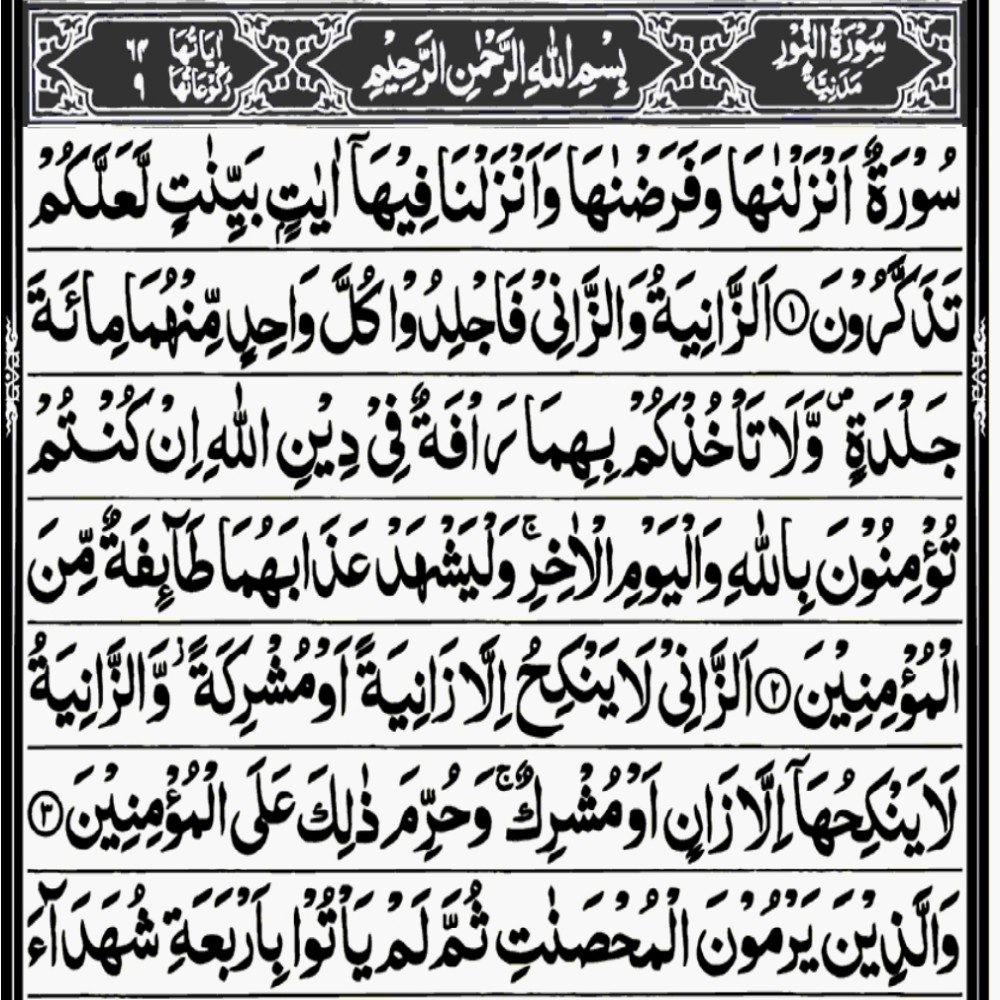 سُوۡرَةُ النُّوۡرِ مَدَنِيَّةٌ
بِسۡمِ اللّٰهِ الرَّحۡمٰنِ الرَّحِيۡمِ
اٰيَاتُهَا ٦٤
رُكُوۡعَاتُهَا ٩
سُوۡرَةٌ اَنۡزَلۡنٰهَا وَفَرَضۡنٰهَا وَاَنۡزَلۡنَا فِيۡهَاۤ اٰيٰتٍۭ بَيِّنٰتٍ لَّعَلَّكُمۡ
تَذَكَّرُوۡنَ ۞١ اَلزَّانِيَةُ وَالزَّانِىۡ فَاجۡلِدُوۡا كُلَّ وَاحِدٍ مِّنۡهُمَا مِائَةَ
جَلۡدَةٍ ۖ وَّلَا تَاۡخُذۡكُمۡ بِهِمَا رَاۡفَةٌ فِىۡ دِيۡنِ اللّٰهِ اِنۡ كُنۡتُمۡ
تُؤۡمِنُوۡنَ بِاللّٰهِ وَالۡيَوۡمِ الۡاٰخِرِۚ وَلۡيَشۡهَدۡ عَذَابَهُمَا طَآٮِٕفَةٌ مِّنَ
الۡمُؤۡمِنِيۡنَ ۞٢ اَلزَّانِىۡ لَا يَنۡكِحُ اِلَّا زَانِيَةً اَوۡ مُشۡرِكَةً ؗ وَّالزَّانِيَةُ
لَا يَنۡكِحُهَاۤ اِلَّا زَانٍ اَوۡ مُشۡرِكٌۚ وَحُرِّمَ ذٰلِكَ عَلَى الۡمُؤۡمِنِيۡنَ ۞٣
وَالَّذِيۡنَ يَرۡمُوۡنَ الۡمُحۡصَنٰتِ ثُمَّ لَمۡ يَاۡتُوۡا بِاَرۡبَعَةِ شُهَدَآءَ